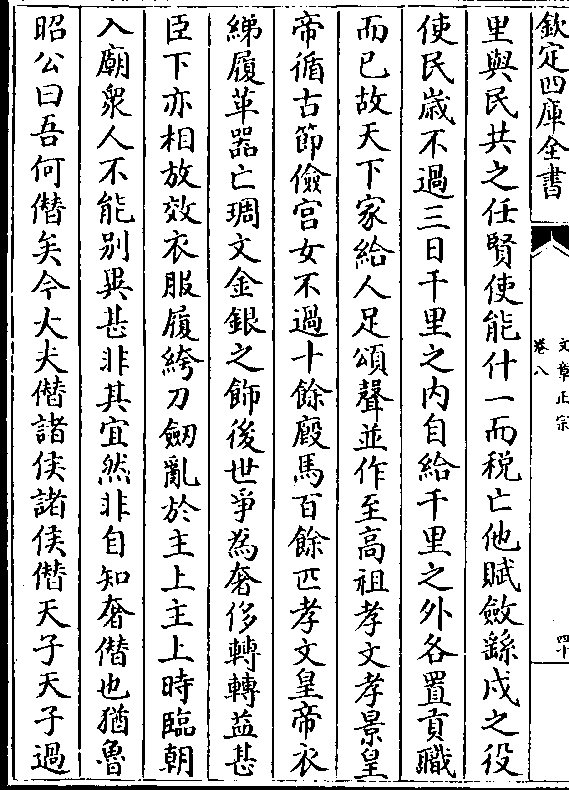 欽定四庫全書
文章正宗
卷八
四十
里與民共之任賢使能什一而税亡他賦斂繇戍之役
使民歳不過三日千里之内自給千里之外各置貢職
而已故天下家給人足頌聲並作至高祖孝文孝景皇
帝循古節儉宫女不過十餘廏馬百餘匹孝文皇帝衣
綈履革器亡琱文金銀之飾後世爭為奢侈轉轉益甚
臣下亦相放效衣服履絝刀劒亂於主上主上時臨朝
入廟衆人不能别異甚非其宜然非自知奢僣也猶魯
昭公曰吾何僣矣今大夫僣諸侯諸侯僣天子天子過